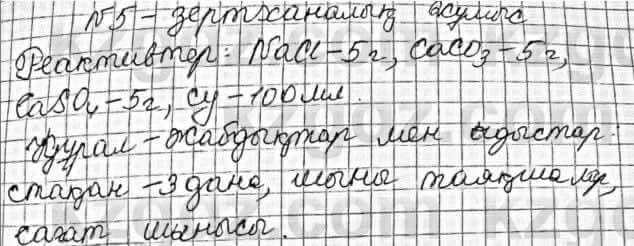 №5 - зертханалық жұмыс
Реактивтер: NaCl-5г, CaCO₃-5г,
CaSO₄-5г, су-100мл.
Құрал-жабдықтар мен ыдыстар:
стақан -3 дана, шыны таяқшалар,
сағат шынысы.